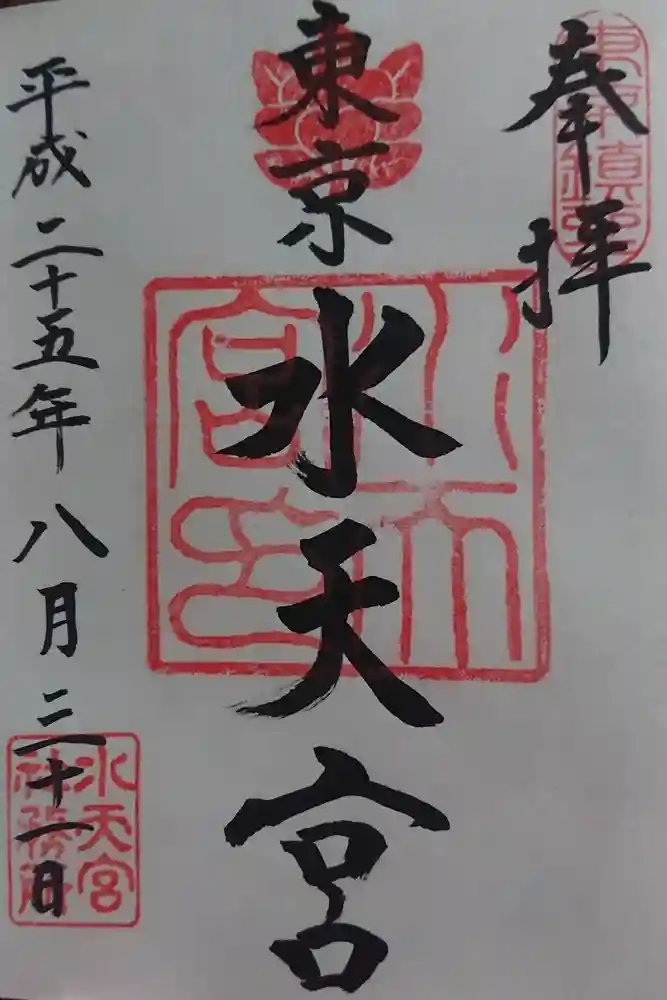 奉拝
東京鎮座
東京水天宮
水天宮印
平成二十五年八月三十一日
水天宮
社務所